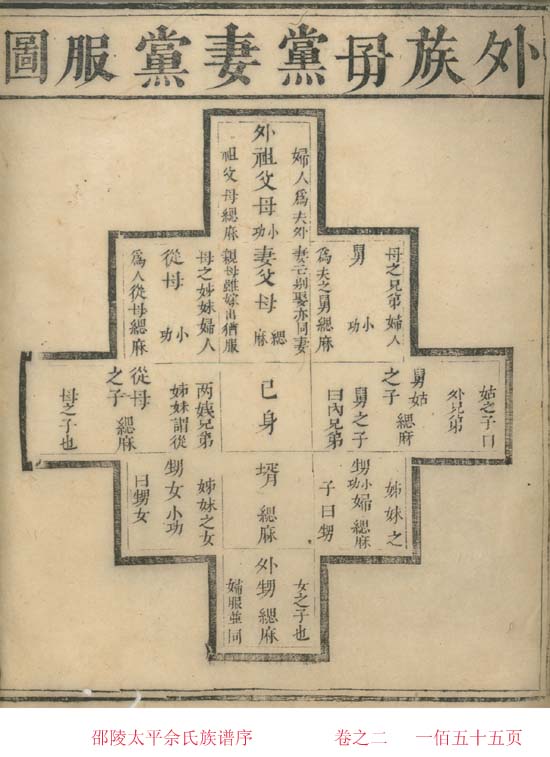 外族母黨妻黨服圖
婦人爲夫外
外祖父母小功
祖父母緦麻
母之兄弟婦人
舅小功
爲夫之舅緦麻
妻亡别娶亦同妻
妻父母緦麻
親母雖嫁出猶服
母之姊妹婦人
從母小功
爲人從母緦麻
姑之子曰
外兄弟
舅姑之子緦麻
舅之子
曰內兄弟
己身
两姨兄弟
姊妹謂從
從母之子緦麻
母之子也
姊妹之
甥小功婦緦麻
子曰甥
壻緦麻
姊妹之女
甥女小功
曰甥女
女之子也
外甥緦麻
婦服並同
邵陵太平余氏族谱序 卷之二 一佰五十五页